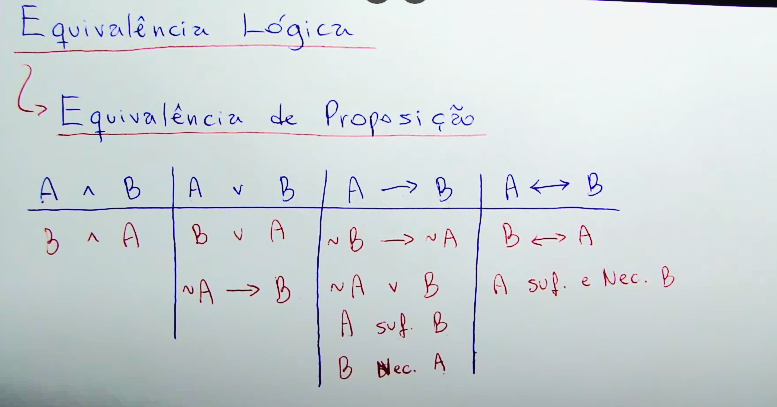 Equivalência Lógica
Equivalência de Proposição
A ∧ B A ∨ B A → B A ↔ B
B ∧ A B ∨ A ~B → ~A B ↔ A
~A → B ~A ∨ B A suf. e Nec. B
A suf. B
B Nec. A